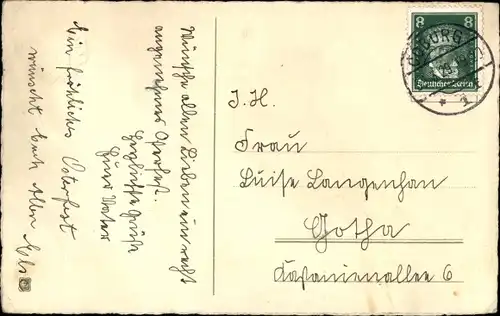 Wünsche allen Lieben ein recht
angenehmes Osterfest.
Herzliche Grüße
Euer Vater
Ein fröhliches Osterfest
wünscht Euch Allen Els
8 8
Deutsches Reich
COBURG
1
I. H.
Frau
Luise Langenhan
Gotha
Kastanienallee 6